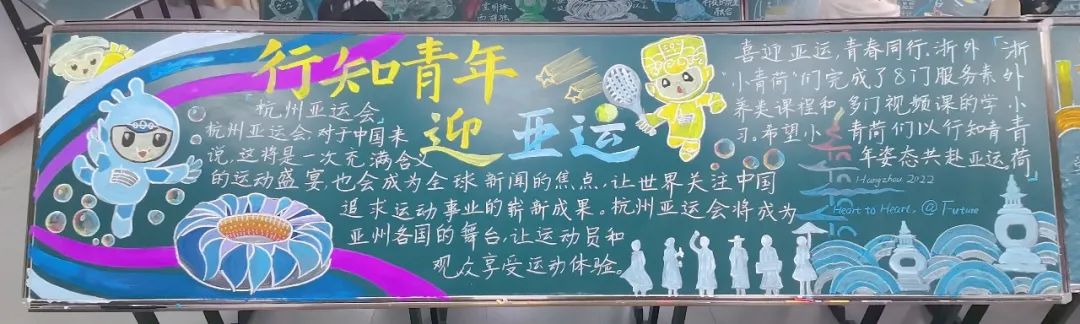 行知青年
迎亚运
「杭州亚运会」
杭州亚运会,对于中国来
说,这将是一次充满含义
的运动盛宴,也会成为全球新闻的焦点,让世界关注中国
追求运动事业的崭新成果。杭州亚运会将成为
亚州各国的舞台,让运动员和
观众享受运动体验。
喜迎亚运,青春同行.浙外
“小青荷”们完成了8门服务素
养类课程和多门视频课的学
习.希望小青荷们以行知青
年姿态共赴亚运.
「浙外小青荷」
Hangzhou 2022
Heart to Heart, @ Future